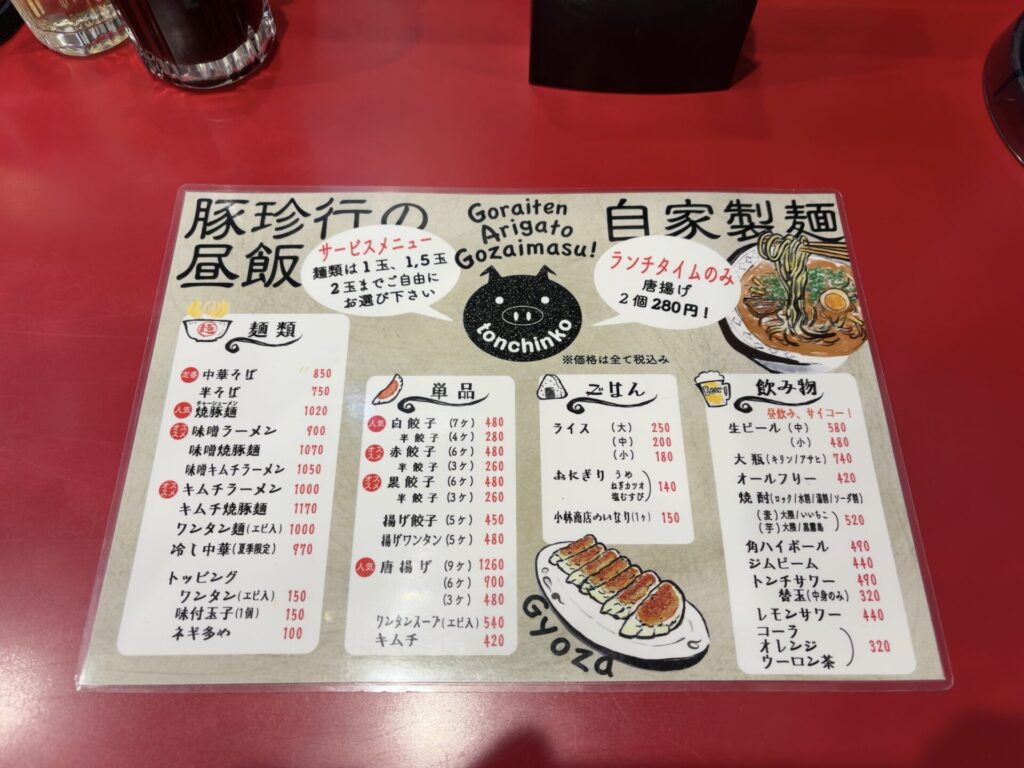 豚珍行の
昼飯
サービスメニュー
麺類は1玉、1,5玉
2玉までご自由に
お選び下さい
Goraiten
Arigato
Gozaimasu!
tonchinko
自家製麺
ランチタイムのみ
唐揚げ
2個 280円!
※価格は全て税込み
麺 麺類
定番 中華そば 850
半そば 750
チャーシューメン
人気 焼豚麺 1020
オススメ 味噌ラーメン 900
味噌焼豚麺 1070
味噌キムチラーメン 1050
オススメ キムチラーメン 1000
キムチ焼豚麺 1170
ワンタン麺(エビ入) 1000
冷し中華(夏季限定) 970
トッピング
ワンタン(エビ入) 150
味付玉子(1個) 150
ネギ多め 100
単品
人気 白餃子 (7ヶ) 480
半餃子 (4ヶ) 280
オススメ 赤餃子 (6ヶ) 480
半餃子 (3ヶ) 260
オススメ 黒餃子 (6ヶ) 480
半餃子 (3ヶ) 260
揚げ餃子 (5ヶ) 450
揚げワンタン (5ヶ) 480
人気 唐揚げ (9ヶ) 1260
(6ヶ) 900
(3ヶ) 480
ワンタンスープ(エビ入) 540
キムチ 420
ごはん
ライス (大) 250
(中) 200
(小) 180
おにぎり うめ
ねぎカツオ 140
塩むすび
小林商店のいなり(1ヶ) 150
Gyoza
BEER! 飲み物
昼飲み、サイコー!
生ビール (中) 580
(小) 480
大瓶(キリン/アサヒ) 740
オールフリー 420
焼酎(ロック/水割/湯割/ソーダ割)
(麦)大隅/いいちこ 520
(芋)大隅/黒霧島
角ハイボール 490
ジムビーム 440
トンチサワー 490
替玉(中身のみ) 320
レモンサワー 440
コーラ
オレンジ 320
ウーロン茶